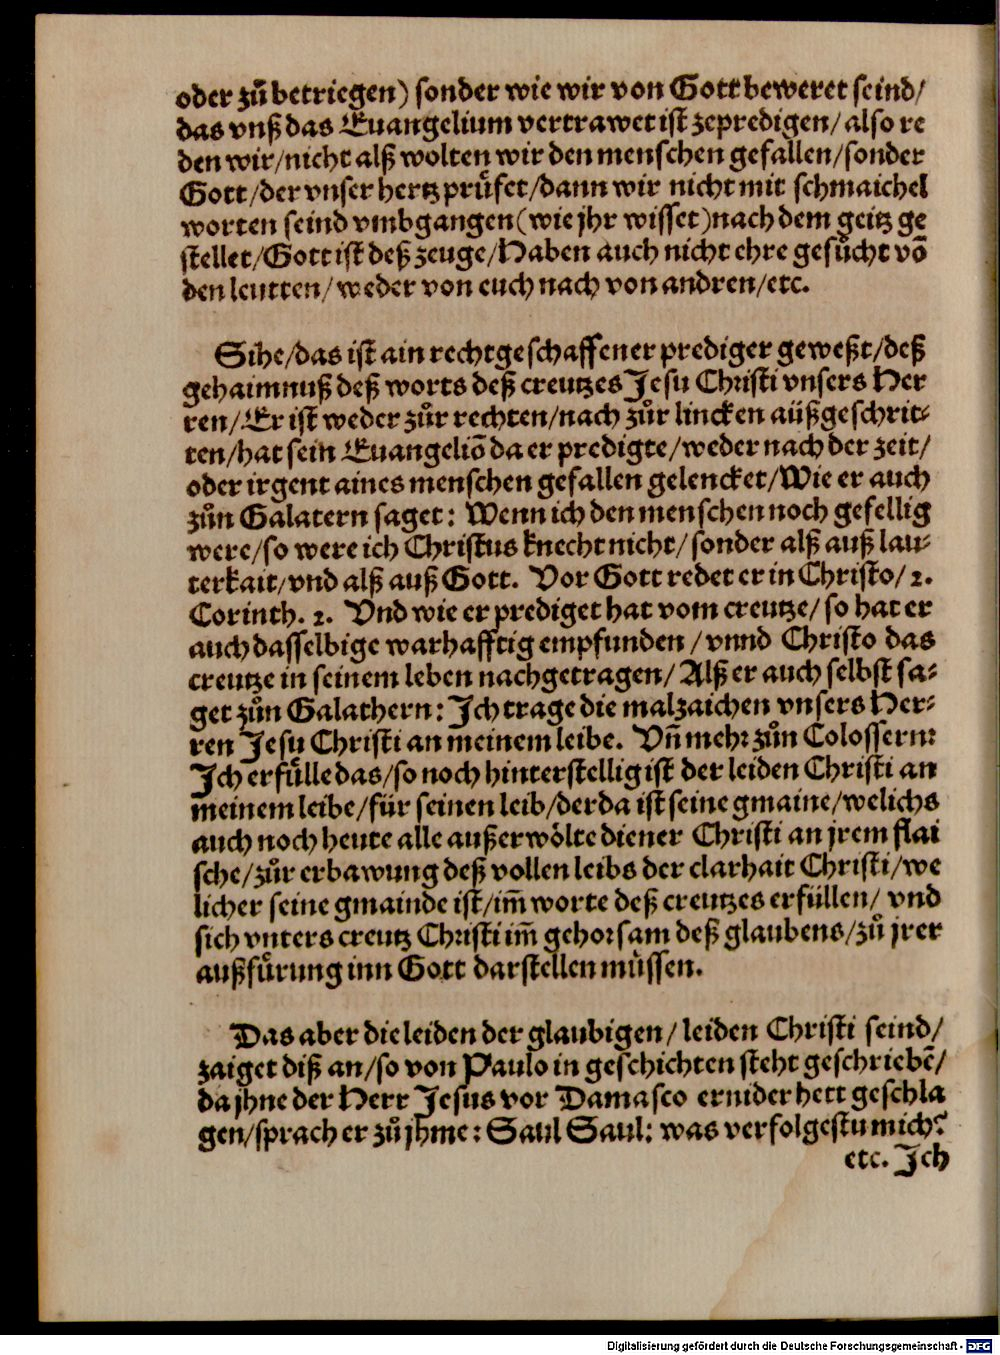 oder zů betriegen) sonder wie wir von Gott beweret seind/
das vnß das Euangelium vertrawet ist zepredigen/ also re
den wir/nicht alß wolten wir den menschen gefallen/sonder
Gott/der vnser hertz průfet/dann wir nicht mit schmaichel
worten seind vmbgangen(wie jhr wisset)nach dem geitz ge
stellet/Gott ist deß zeuge/Haben auch nicht ehre gesůcht võ
den leutten/weder von euch nach von andren/etc.

Sihe/das ist ain rechtgeschaffener prediger geweßt/deß
gehaimnuß deß worts deß creutzes Jesu Christi vnsers Her
ren/Er ist weder zůr rechten/nach zůr lincken aüßgeschrit⸗
ten/hat sein Euangeliõ da er predigte/weder nach der zeit/
oder irgent aines menschen gefallen gelencket/Wie er auch
zůn Galatern saget: Wenn ich den menschen noch gefellig
were/so were ich Christus knecht nicht/ sonder alß auß lau⸗
terkait/vnd alß auß Gott. Vor Gott redet er in Christo/ 2.
Corinth. 2. Vnd wie er prediget hat vom creutze/ so hat er
auch dasselbige warhafftig empfunden / vnnd Christo das
creutze in seinem leben nachgetragen/ Alß er auch selbst sa⸗
get zůn Galathern: Ich trage die malzaichen vnsers Her⸗
ren Jesu Christi an meinem leibe. Vñ mehr zůn Colossern:
Ich erfülle das/so noch hinterstellig ist der leiden Christi an
meinem leibe/für seinen leib/der da ist seine gmaine/welichs
auch noch heute alle außerwölte diener Christi an jrem flai
sche/zůr erbawung deß vollen leibs der clarhait Christi/we
licher seine gmainde ist/im̃ worte deß creutzes erfüllen/ vnd
sich vnters creutz Christi im̃ gehorsam deß glaubens/zů jrer
außfůrung inn Gott darstellen můssen.

Das aber die leiden der glaubigen/ leiden Christi seind/
zaiget diß an/so von Paulo in geschichten steht geschriebẽ/
da jhne der Herr Jesus vor Damasco ernider hett geschla
gen/sprach er zů jhme: Saul Saul: was verfolgestu mich?
etc. Ich

Digitalisierung gefördert durch die Deutsche Forschungsgemeinschaft - DFG